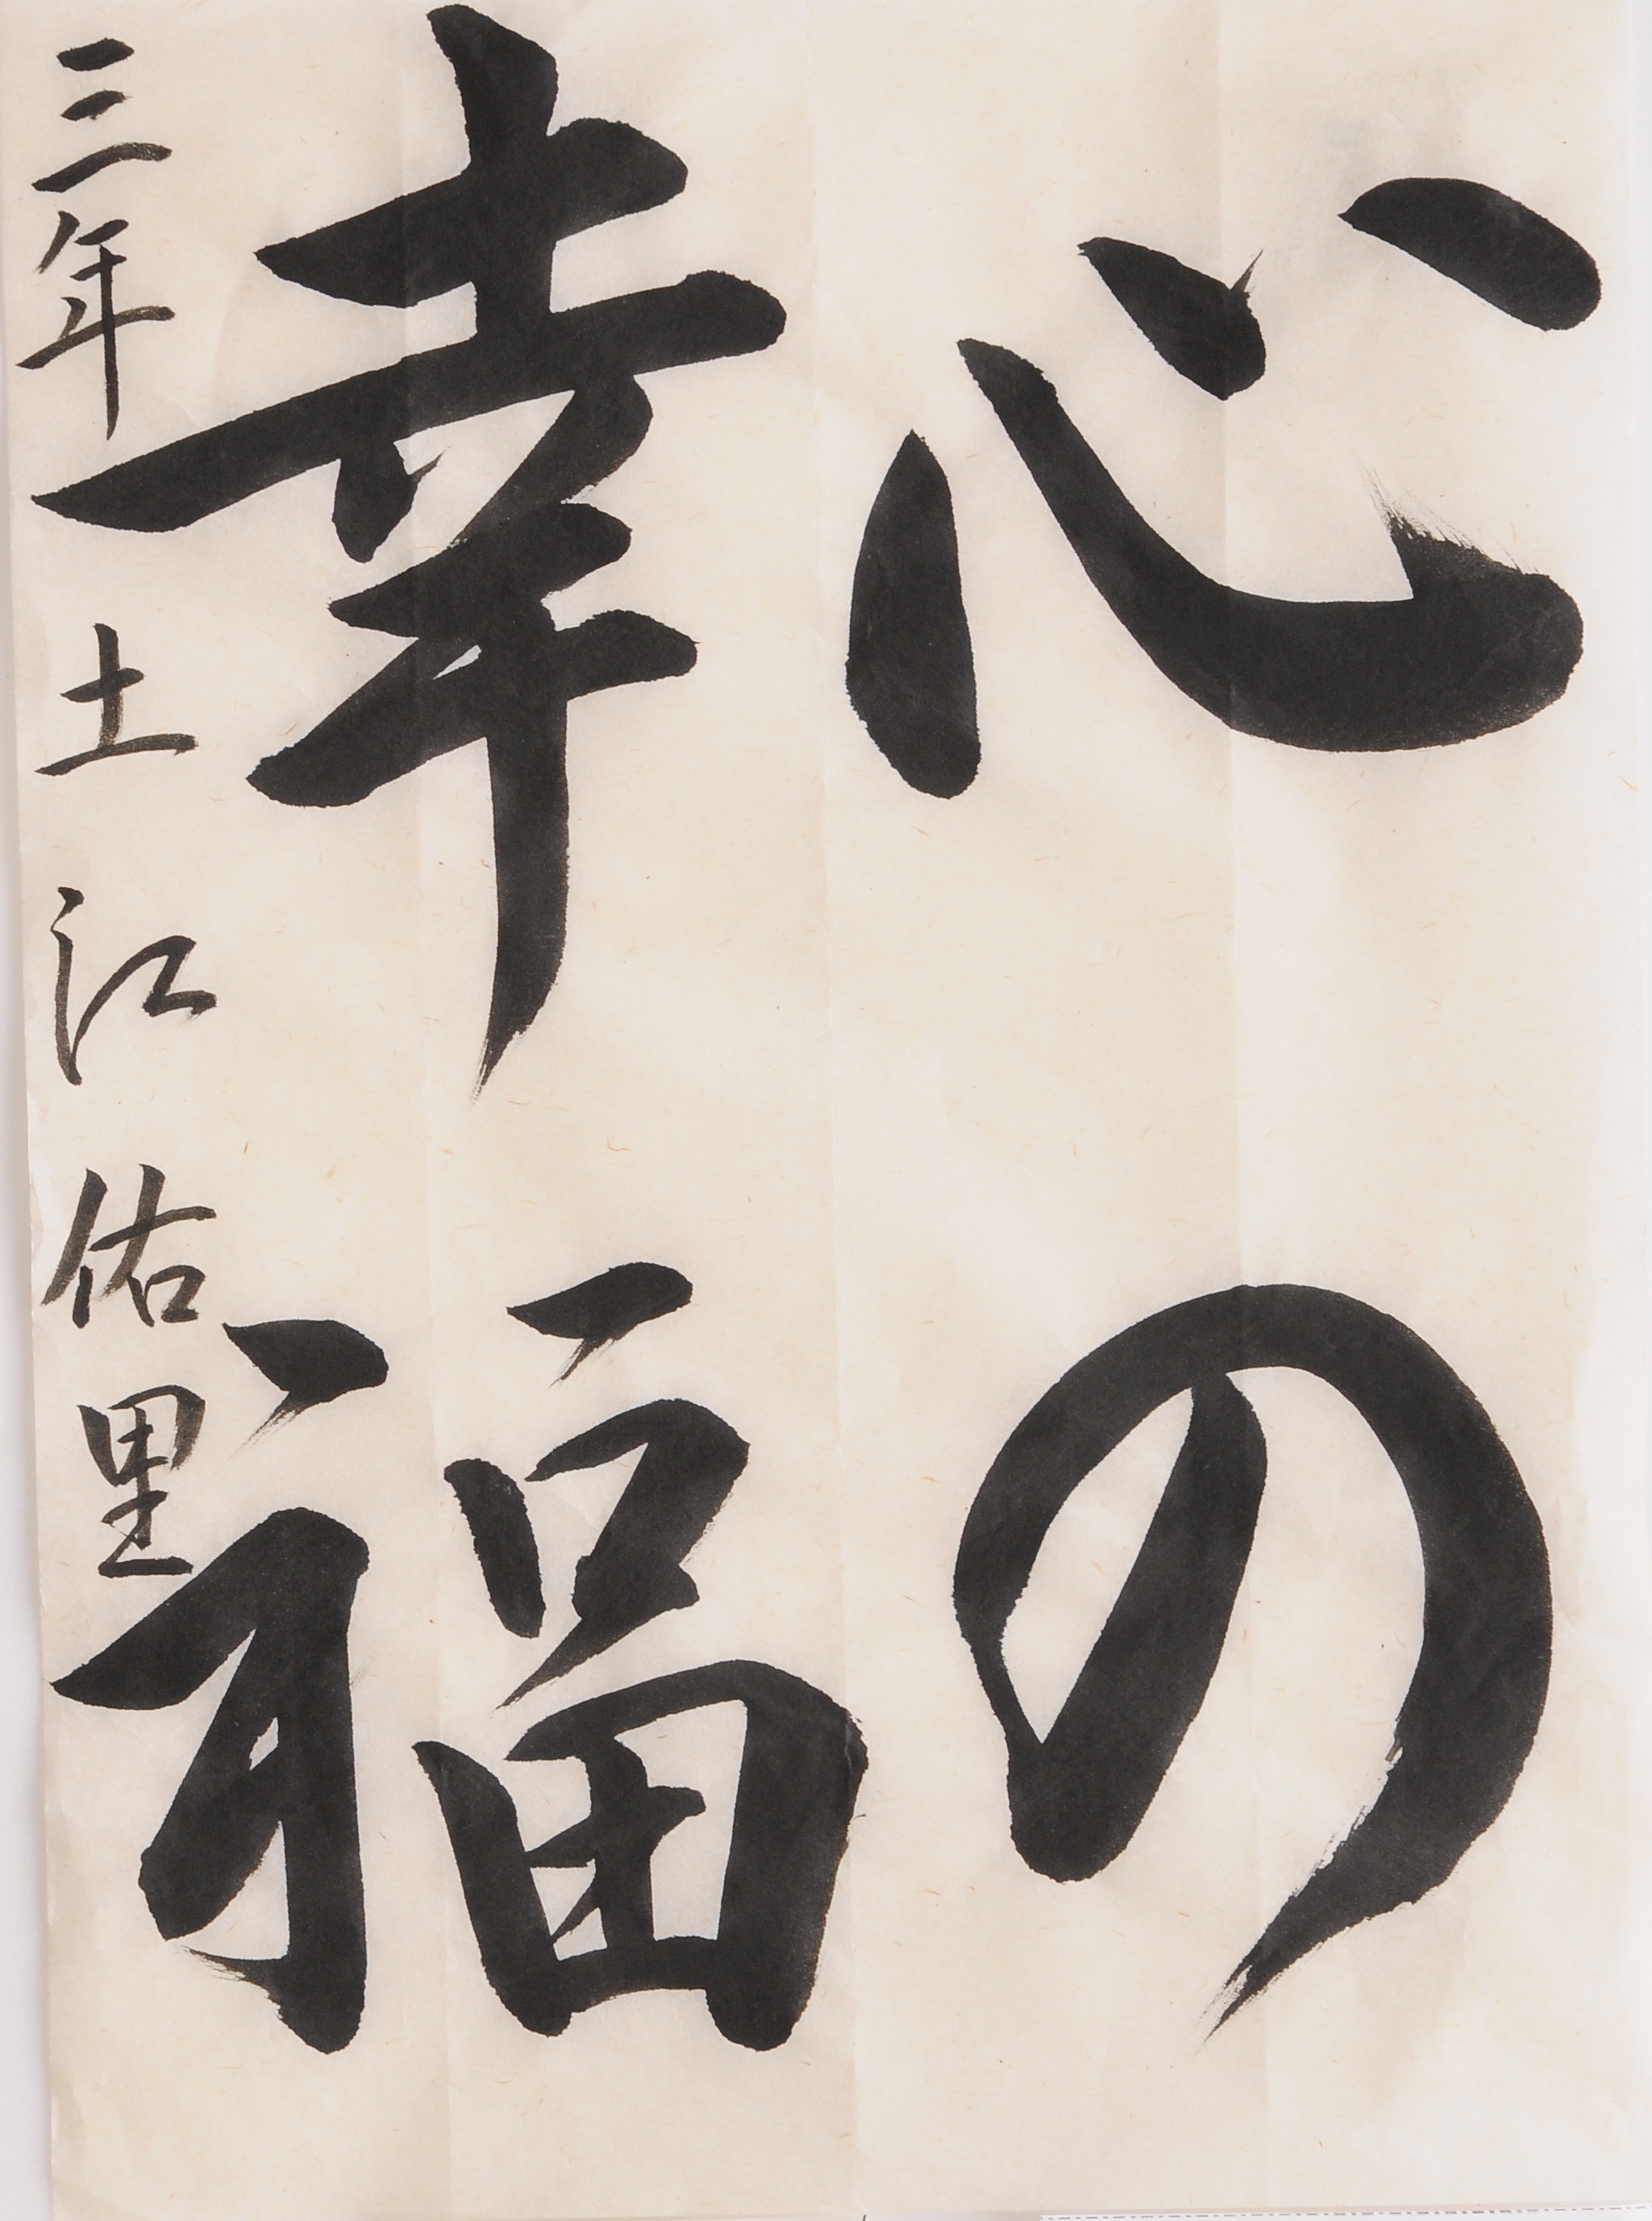 心の
幸福
三年 土江佑里